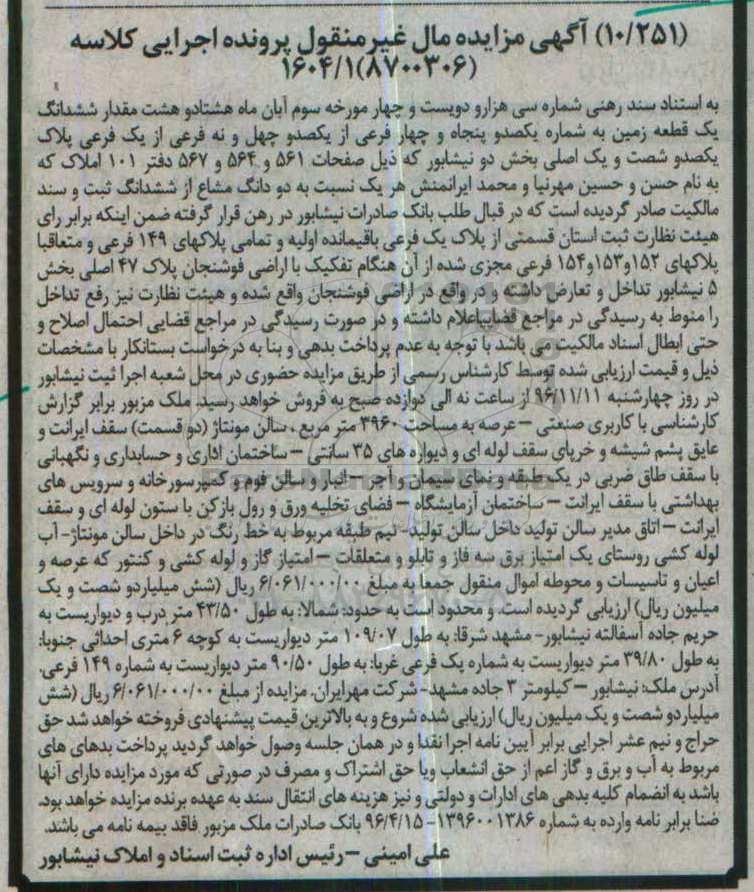 (۱۰/۲۵۱) آگهی مزایده مال غیرمنقول پرونده اجرایی کلاسه
۱۶۰۴/۱(۸۷۰۰۳۰۶)
به استناد سند رهنی شماره سی هزارو دویست و چهار مورخه سوم آبان ماه هشتادو هشت مقدار ششدانگ
یک قطعه زمین به شماره یکصدو پنجاه و چهار فرعی از یکصدو چهل و نه فرعی از یک فرعی پلاک
یکصدو شصت و یک اصلی بخش دو نیشابور که ذیل صفحات ۵۶۱ و ۵۶۴ و ۵۶۷ دفتر ۱۰۱ املاک که
به نام حسن و حسین مهرنیا و محمد ایرانمنش هر یک نسبت به دو دانگ مشاع از ششدانگ ثبت و سند
مالکیت صادر گردیده است که در قبال طلب بانک صادرات نیشابور در رهن قرار گرفته ضمن اینکه برابر رای
هیئت نظارت ثبت استان قسمتی از پلاک یک فرعی باقیمانده اولیه و تمامی پلاکهای ۱۴۹ فرعی و متعاقبا
پلاکهای ۱۵۲و۱۵۳و۱۵۴ فرعی مجزی شده از آن هنگام تفکیک با اراضی فوشنجان پلاک ۴۷ اصلی بخش
۵ نیشابور تداخل و تعارض داشته و در واقع در اراضی فوشنجان واقع شده و هیئت نظارت نیز رفع تداخل
را منوط به رسیدگی در مراجع قضاییاعلام داشته و در صورت رسیدگی در مراجع قضایی احتمال اصلاح و
حتی ابطال اسناد مالکیت می باشد با توجه به عدم پرداخت بدهی و بنا به درخواست بستانکار با مشخصات
ذیل و قیمت ارزیابی شده توسط کارشناس رسمی از طریق مزایده حضوری در محل شعبه اجرا ثبت نیشابور
در روز چهارشنبه ۹۶/۱۱/۱۱ از ساعت نه الی دوازده صبح به فروش خواهد رسید. ملک مزبور برابر گزارش
کارشناسی با کاربری صنعتی – عرصه به مساحت ۳۹۶۰ متر مربع ، سالن مونتاژ (دو قسمت) سقف ایرانت و
عایق پشم شیشه و خرپای سقف لوله ای و دیواره های ۳۵ سانتی – ساختمان اداری و حسابداری و نگهبانی
با سقف طاق ضربی در یک طبقه و نمای سیمان و آجر – انبار و سالن فوم و کمپرسورخانه و سرویس های
بهداشتی با سقف ایرانت – ساختمان آزمایشگاه – فضای تخلیه ورق و رول بازکن با ستون لوله ای و سقف
ایرانت – اتاق مدیر سالن تولید داخل سالن تولید- نیم طبقه مربوط به خط رنگ در داخل سالن مونتاژ- آب
لوله کشی روستای یک امتیاز برق سه فاز و تابلو و متعلقات – امتیاز گاز و لوله کشی و کنتور که عرصه و
اعیان و تاسیسات و محوطه اموال منقول جمعا به مبلغ ۶/۰۶۱/۰۰۰/۰۰ ریال (شش میلیاردو شصت و یک
میلیون ریال) ارزیابی گردیده است. و محدود است به حدود: شمالا: به طول ۴۳/۵۰ متر درب و دیواریست به
حریم جاده آسفالته نیشابور- مشهد شرقا: به طول ۱۰۹/۰۷ متر دیواریست به کوچه ۶ متری احداثی جنوبا:
به طول ۳۹/۸۰ متر دیواریست به شماره یک فرعی غربا: به طول ۹۰/۵۰ متر دیواریست به شماره ۱۴۹ فرعی.
آدرس ملک: نیشابور – کیلومتر ۳ جاده مشهد- شرکت مهرایران. مزایده از مبلغ ۶/۰۶۱/۰۰۰/۰۰ ریال (شش
میلیاردو شصت و یک میلیون ریال) ارزیابی شده شروع و به بالاترین قیمت پیشنهادی فروخته خواهد شد حق
حراج و نیم عشر اجرایی برابر آیین نامه اجرا نقدا و در همان جلسه وصول خواهد گردید پرداخت بدهای های
مربوط به آب و برق و گاز اعم از حق انشعاب ویا حق اشتراک و مصرف در صورتی که مورد مزایده دارای آنها
باشد به انضمام کلیه بدهی های ادارات و دولتی و نیز هزینه های انتقال سند به عهده برنده مزایده خواهد بود.
ضنا برابر نامه وارده به شماره ۱۳۹۶۰۰۱۳۸۶- ۹۶/۴/۱۵ بانک صادرات ملک مزبور فاقد بیمه نامه می باشد.
علی امینی –رئیس اداره ثبت اسناد و املاک نیشابور